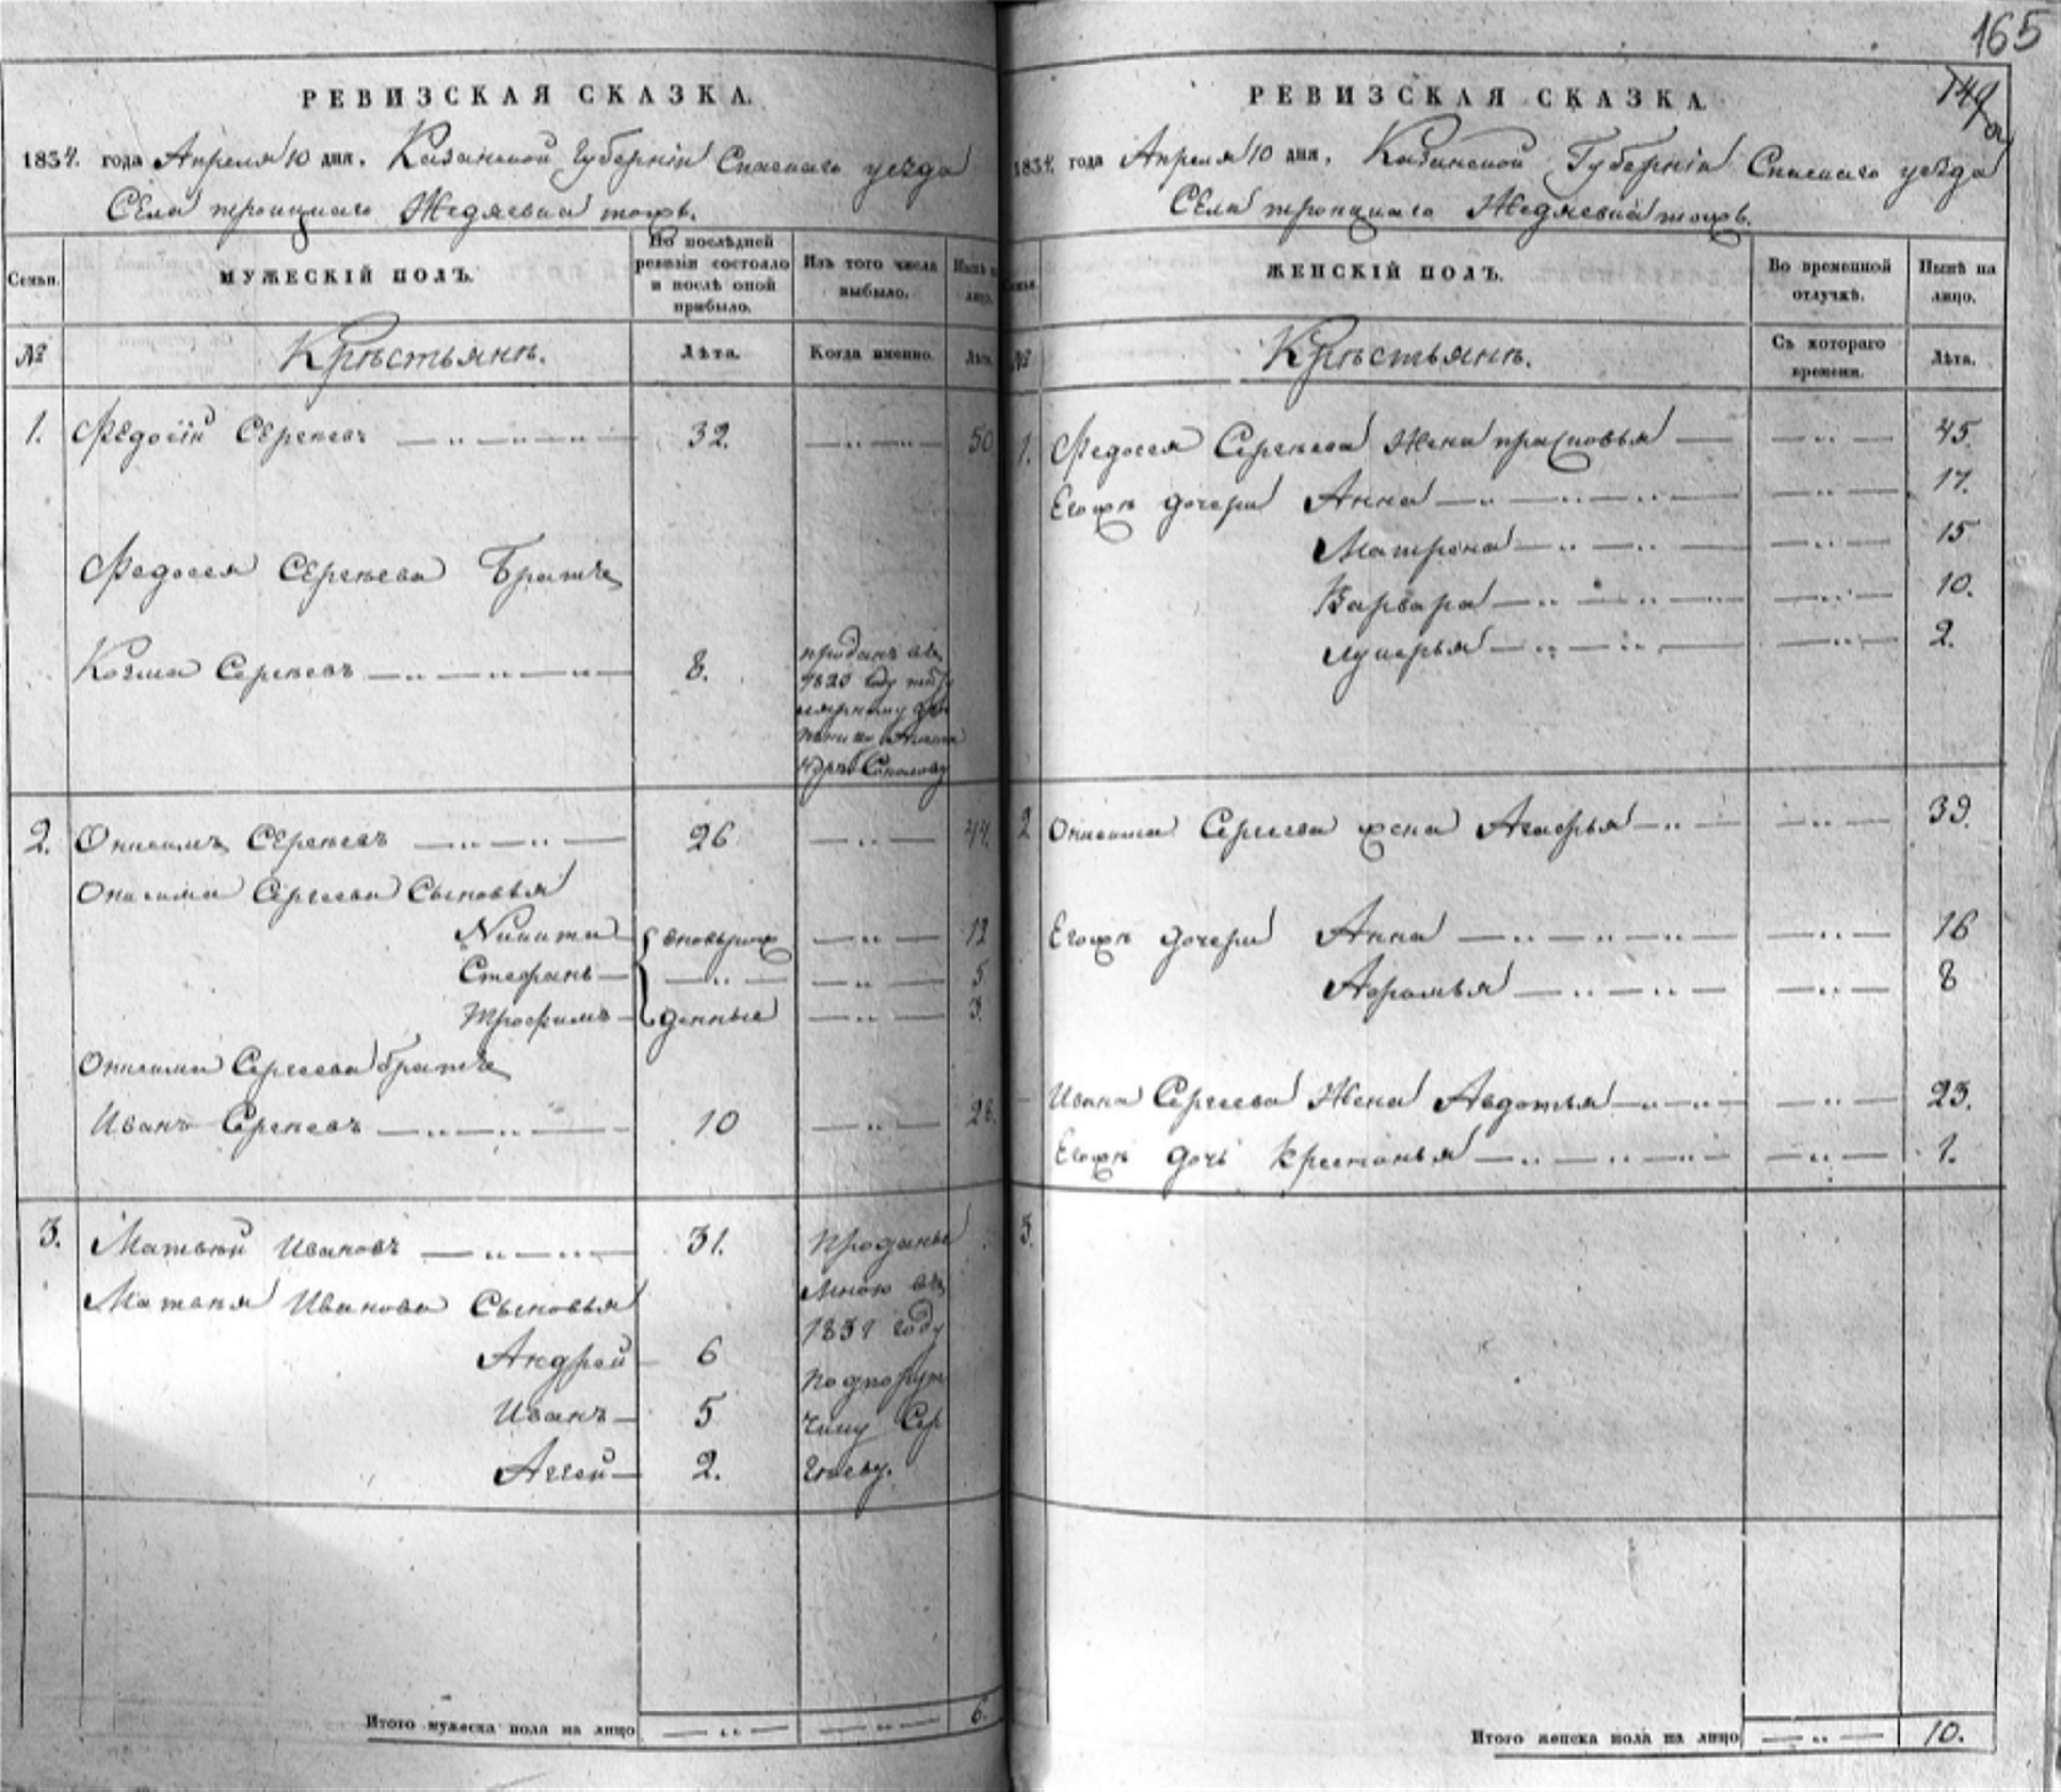 165
РЕВИЗСКАЯ СКАЗКА.
1834. года Апреля 10 дня. Казанской Губернiи Спаскаго уезда
Села троицкаго Жедяевка тожъ.
Семьи.
МУЖЕСКIЙ ПОЛЪ.
По послѣдней ревизiи состояло и послѣ оной прибыло.
Изъ того числа выбыло.
Нынѣ на лицо.
№
Крѣстьянѣ.
Лѣта.
Когда именно.
Лѣта.
1. Федосiй Сергѣевъ 32. 50
Федосея Сергѣева Братъ
Козма Сергѣевъ 8. проданъ въ
году
Соколову
2. Онисимъ Сергѣевъ 26 44.
Онисима Сергеева Сыновья
Никита вновьрож 12
Стефанъ 5
Трофимъ денные 3.
Онисима Сергеева братъ
Иванъ Сергѣевъ 10 28.
3. Матвѣй Ивановъ 31. Проданы
Матвѣя Иванова Сыновья мною въ
1831 году
Андрей 6
подпору
Иванъ 5 чику Сер
Аггей 2. гѣеву.
Итого мужеска пола на лицо 6.
149
РЕВИЗСКАЯ СКАЗКА
1834. года Апреля 10 дня. Казанской Губернiи Спаскаго уезда
Села троицкаго Жедяевка тожъ.
Семьи.
ЖЕНСКIЙ ПОЛЪ.
Во временной отлучкѣ.
Нынѣ на лицо.
№
Крѣстьянѣ.
Съ котораго времени.
Лѣта.
1. Федосея Сергѣева Жена прасковья 45.
Егожѣ дочери Анна 17.
Матрена 15
Варвара 10.
лукерья 2.
2 Онисима Сергеева жена Агафья 39.
Егожѣ дочери Анна 16
Афросья 8
Ивана Сергеева Жена Авдотья 23.
Егожѣ дочь Крестинья 1.
3.
Итого женска пола на лицо 10.